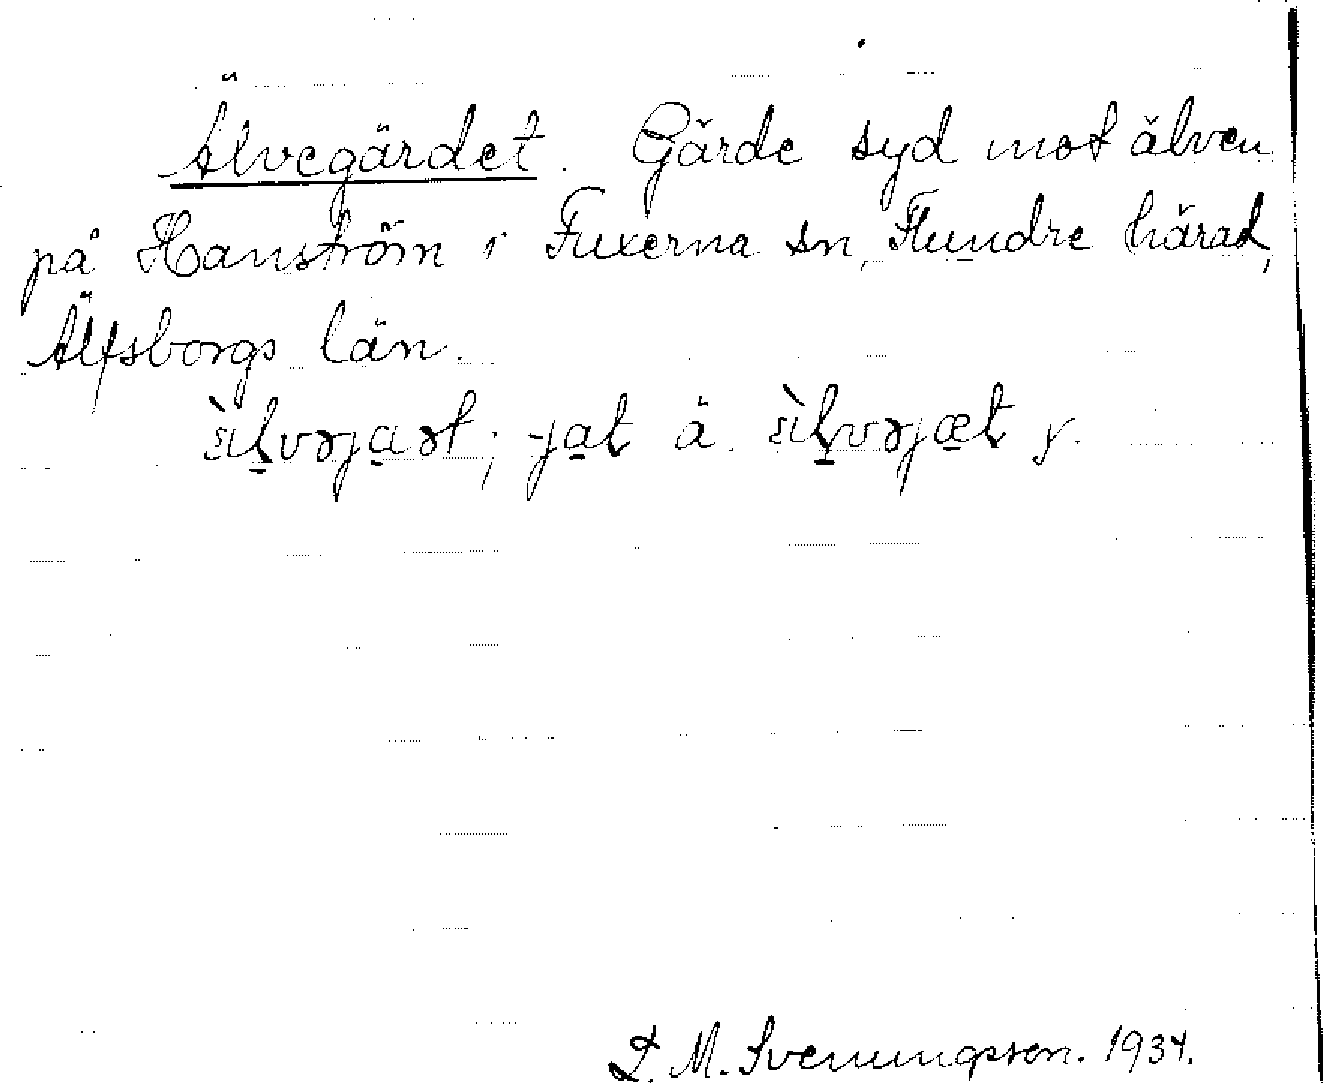 Älvegärdet. Gärde syd mot älven
på Hanström i Fuxerna sn, Flundre härad,
Älfsborgs län.
å
D. M. Svenungsson. 1934.